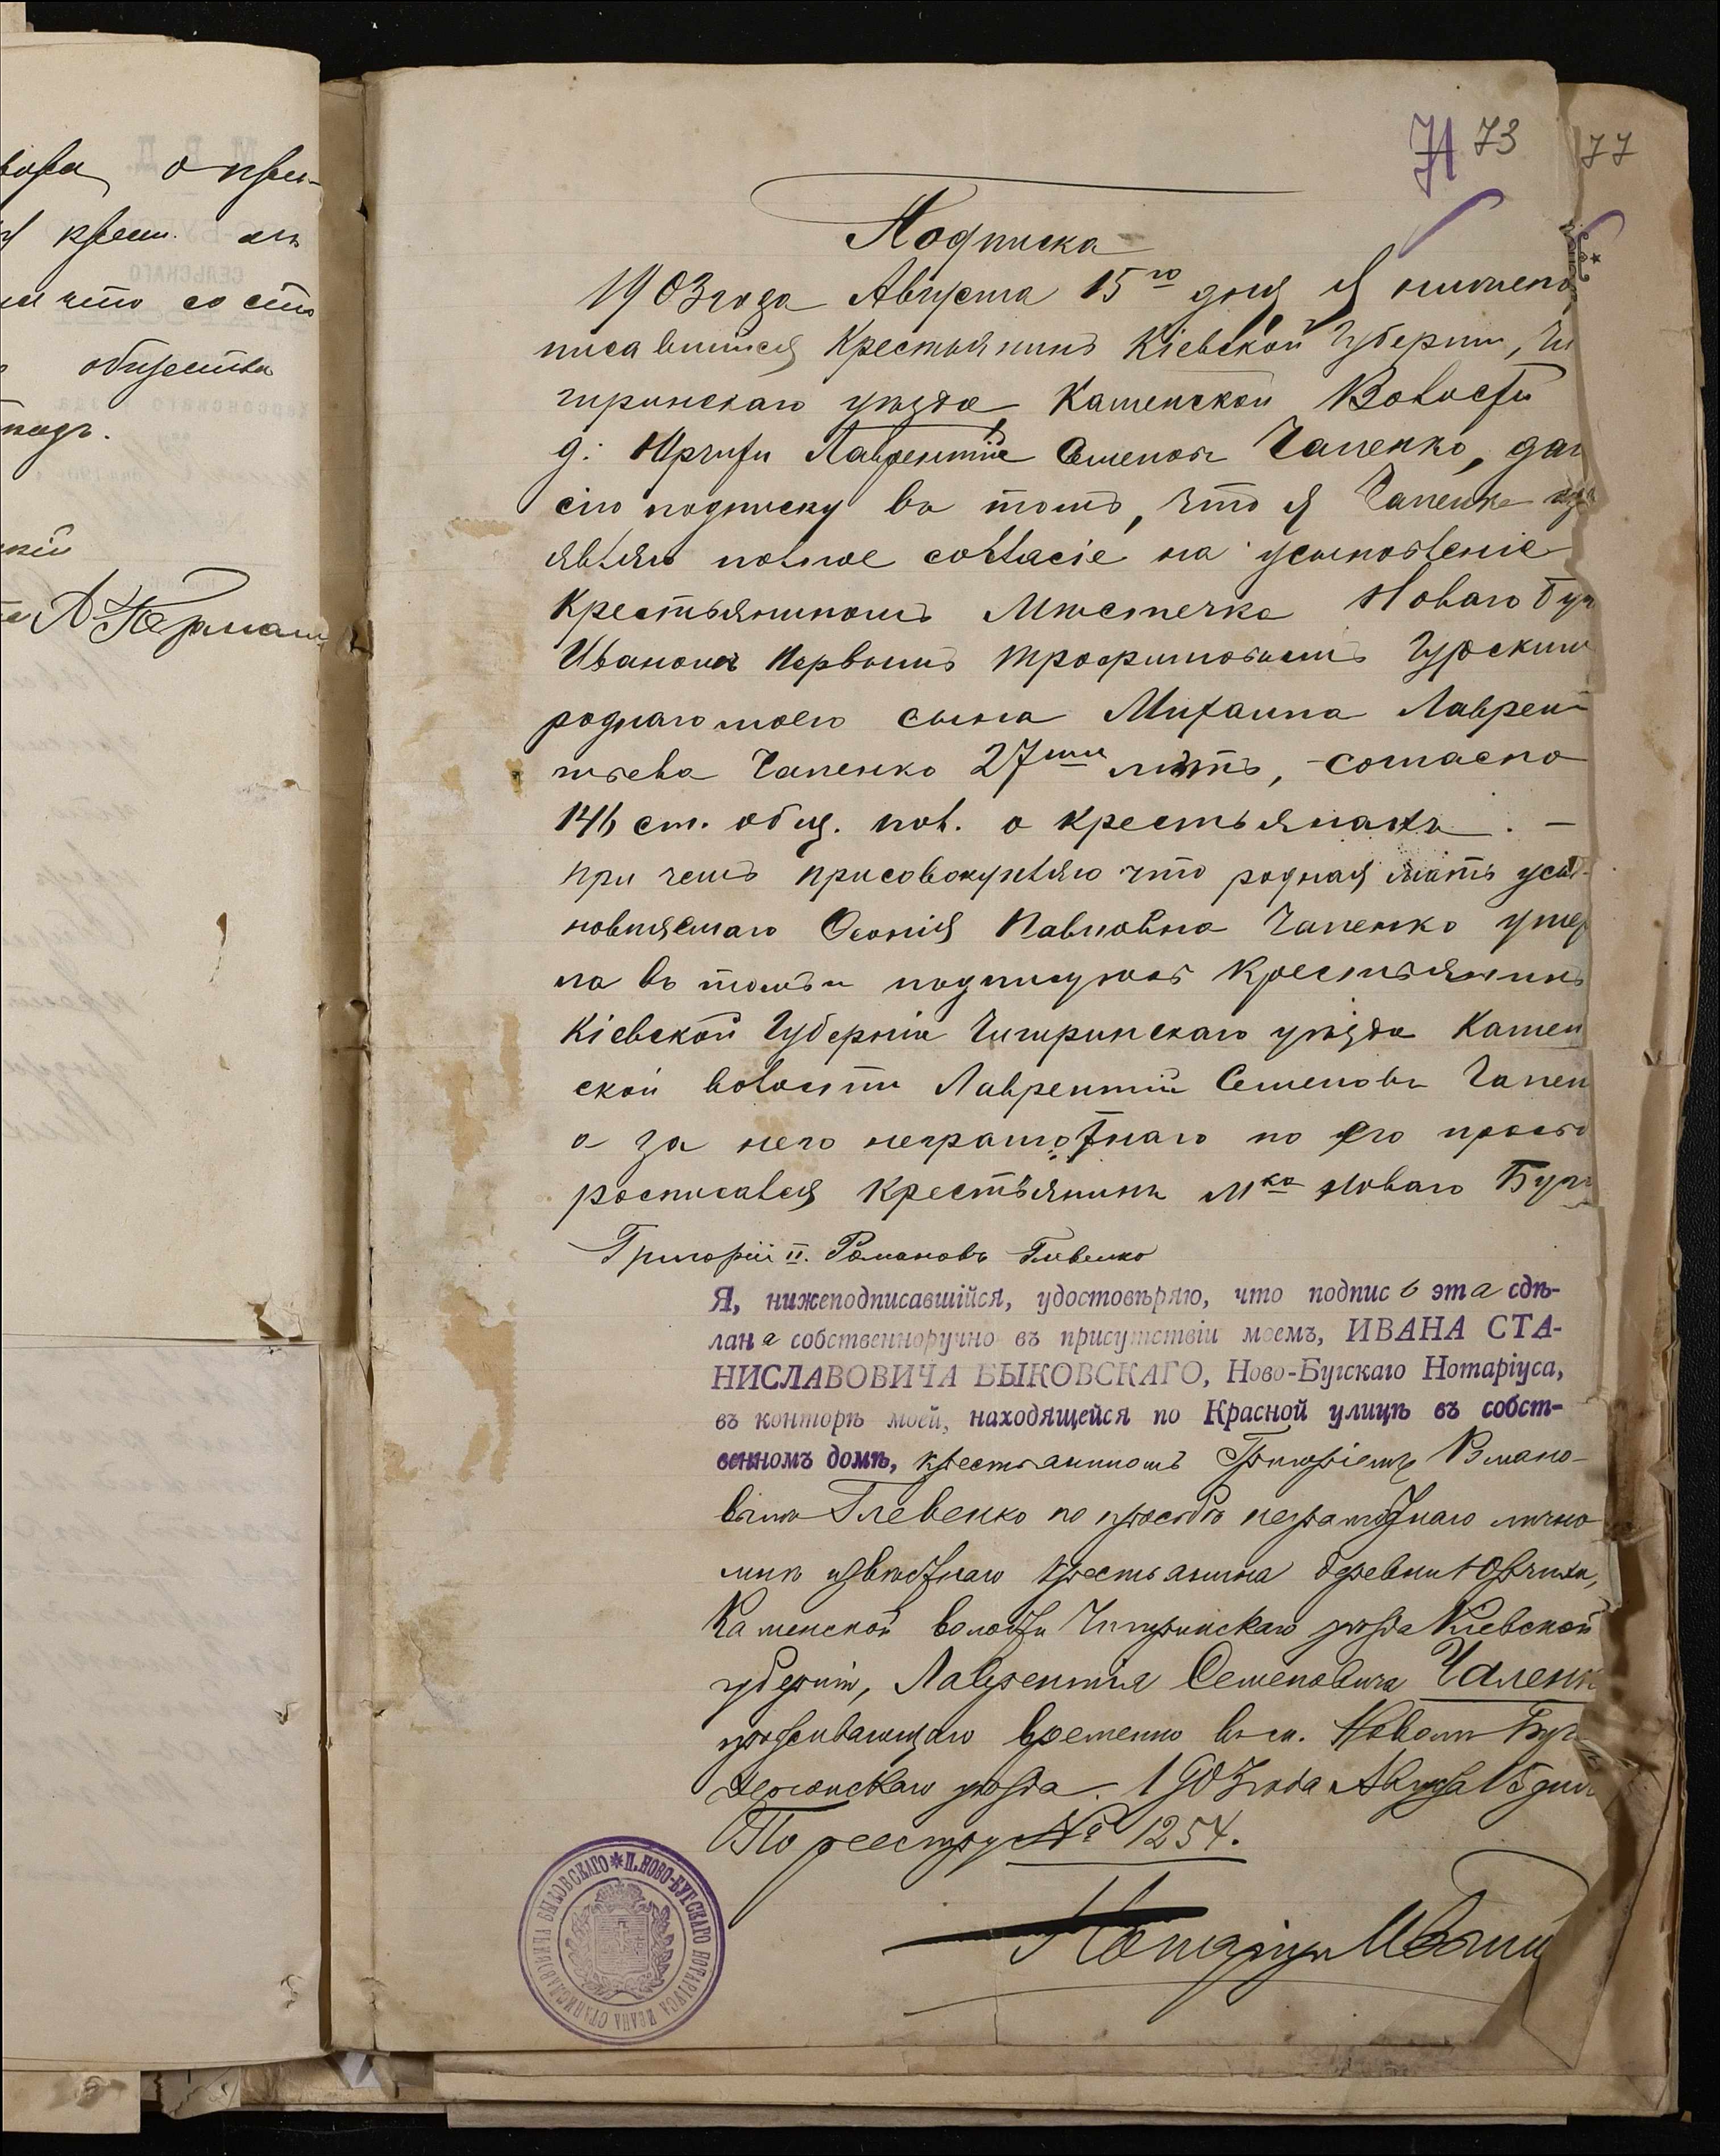 71 73
77
Подписка
1903 года Августа 15го дня я нижепо
писавшийся Крестьянинъ Кіевской Губерніи, Чи
гиринскаго уѣзда Каменской Волости
д. Юрчихи Лаврентій Семеновъ Чаленко, далъ
сію подписку въ томъ, что я Чаленко изъ
являю полное согласіе на усыновленіе
Крестьяниномъ Мѣстечка Новаго Буга
Иваномъ Первымъ Трофимовымъ Гурскимъ
роднаго моего сына Михаила Лаврен
тьева Чаленко 27ми лѣтъ, согласно
146 ст. общ. пол. о крестьянахъ. —
При чемъ присовокупляю что родная мать усы-
новляемаго Ѳеонія Павловна Чаленко умер
ла въ томъ и подпишуюсь Крестьянинъ
Кіевской Губерніи Чигиринскаго уѣзда Камен
ской волости Лаврентій Семеновъ Чален
а за него неграмотнаго по его просьбѣ
росписался Крестьянинъ мка Новаго Буга
Григорій II. Романовъ Глевенко
Я, нижеподписавшійся, удостовѣряю, что подпись эта сдѣ-
лана собственноручно въ присутствіи моемъ, ИВАНА СТА-
НИСЛАВОВИЧА БЫКОВСКАГО, Ново-Бугскаго Нотаріуса,
въ конторѣ моей, находящейся по Красной улицѣ въ собст-
венномъ домѣ, крестьяниномъ Григоріемъ Романо-
вымъ Глевенко по просьбѣ неграмотнаго лично
мнѣ извѣстнаго крестьянина деревни Юрчихи,
Каменской волости Чигиринскаго уѣзда Кіевской
губерніи, Лаврентія Семеновича Чаленк
проживающаго временно въ м. Новомъ Бугѣ
Херсонскаго уѣзда. 1903 года Августа 15 дня
По реестру № 1254.
Нотаріусъ
И. НОВО-БУГСКАГО НОТАРІУСА ИВАНА СТАНИСЛАВОВИЧА БЫКОВСКАГО